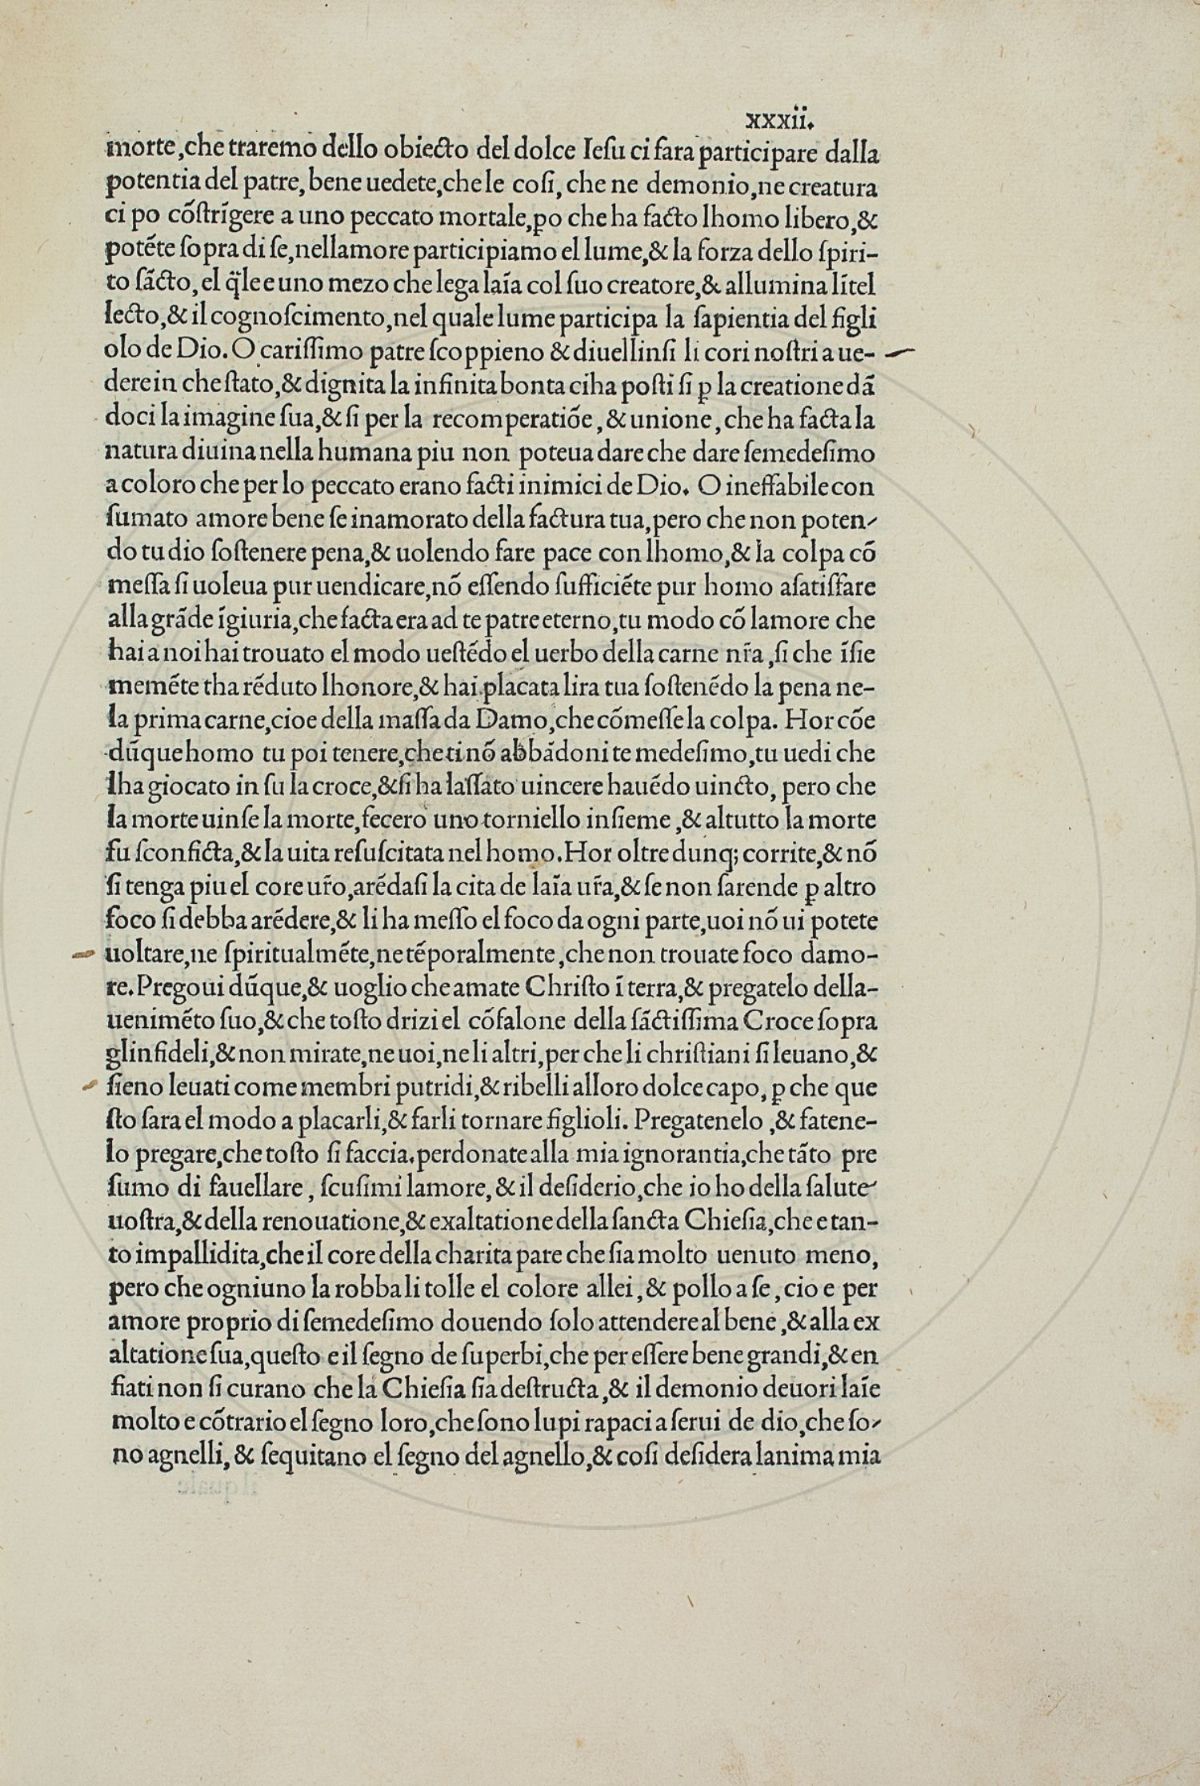 xxxii.
morte,che traremo dello obiecto del dolce Ieſu ci fara participare dalla
potentia del patre, bene uedete,che le coſi, che ne demonio,ne creatura
ci po cōſtrīgere a uno peccato mortale,ꝑo che ha facto lhomo libero,&
potēte ſopra di ſe,nellamore participiamo el lume,& la forza dello ſpiri-
to ſācto, el q̄le e uno mezo che lega laīa col ſuo creatore,& allumina lītel
lecto,& il cognoſcimento,nel quale lume participa la ſapientia del figli
olo de Dio. O cariſſimo patre ſcoppieno & diuellinſi li cori noſtri a ue-
dere in che ſtato,& dignita la infinita bonta ci ha poſti ſi ꝑ la creatione dā
doci la imagine ſua,& ſi per la recomperatiōe, & unione, che ha facta la
natura diuina nella humana piu non poteua dare che dare ſemedeſimo
a coloro che per lo peccato erano facti inimici de Dio. O ineffabile con
ſumato amore bene ſe inamorato della factura tua,pero che non poten-
do tu dio ſoſtenere pena,& uolendo fare pace con lhomo,& la colpa cō
meſſa ſi uoleua pur uendicare,nō eſſendo ſufficiēte pur homo aſatiſfare
alla grāde īgiuria,che facta era ad te patre eterno,tu modo cō lamore che
hai a noi hai trouato el modo ueſtēdo el uerbo della carne nr̄a ,ſi che īſie
memēte tha rēduto lhonore,& hai placata lira tua ſoſtenēdo la pena ne-
la prima carne,cioe della maſſa da Damo,che cōmeſſe la colpa. Hor cōe
dūque homo tu poi tenere,che ti nō abbādoni te medeſimo,tu uedi che
lha giocato in ſu la croce,& ſi ha laſſato uincere hauēdo uincto, pero che
la morte uinſe la morte,fecero uno torniello inſieme ,& altutto la morte
fu ſconficta,& la uita reſuſcitata nel homo. Hor oltre dunq; corrite,& nō
ſi tenga piu el core ur̄o,arēdaſi la cita de laīa ur̄a,& ſe non ſarende ꝑ altro
foco ſi debba arēdere,& li ha meſſo el foco da ogni parte,uoi nō ui potete
uoltare,ne ſpiritualmēte,ne tēporalmente ,che non trouate foco damo-
re. Pregoui dūque,& uoglio che amate Chriſto ī terra,& pregatelo della-
uenimēto ſuo,& che toſto drizi el cōfalone della ſāctiſſima Croce ſopra
glinfideli,& non mirate,ne uoi,ne li altri,per che li chriſtiani ſi leuano,&
ſieno leuati come membri putridi,& ribelli alloro dolce capo, ꝑ che que
ſto ſara el modo a placarli,& farli tornare figlioli. Pregatenelo ,& fatene-
lo pregare,che toſto ſi faccia.perdonate alla mia ignorantia,che tāto pre
ſumo di fauellare , ſcuſimi lamore,& il deſiderio,che io ho della ſalute
uoſtra,& della renouatione,& exaltatione della ſancta Chieſia,che e tan-
to impallidita,che il core della charita pare che ſia molto uenuto meno,
pero che ogniuno la robba li tolle el colore allei ,& pollo a ſe , cio e per
amore proprio di ſemedeſimo douendo ſolo attendere al bene ,& alla ex
altatione ſua,queſto e il ſegno de ſuperbi,che per eſſere bene grandi,& en
fiati non ſi curano che la Chieſia ſia deſtructa,& il demonio deuori laīe
molto e cōtrario el ſegno loro,che ſono lupi rapaci a ſerui de dio,che ſo-
no agnelli, & ſequitano el ſegno del agnello,& coſi deſidera lanima mia